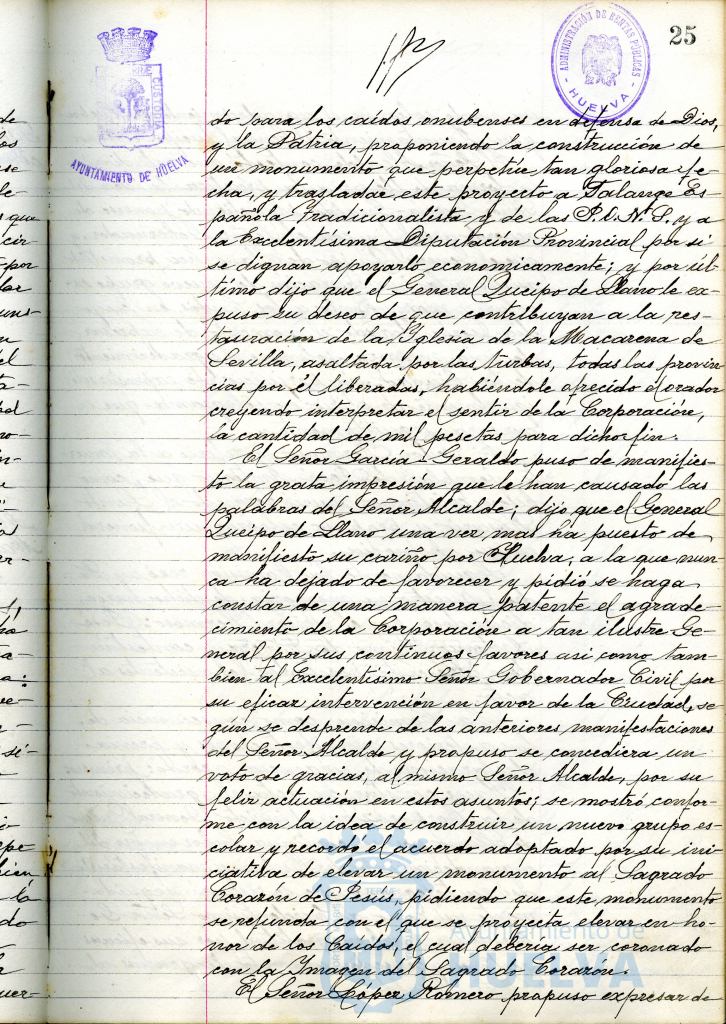 25
ADMINISTRACIÓN DE RENTAS PUBLICAS
HUELVA
CUSTODIA
AYUNTAMIENTO DE HUELVA
do para los caídos onubenses en defensa de Dios,
y la Patria, proponiendo la construcción de
un monumento que perpetúe tan gloriosa fe-
cha, y trasladar este proyecto a Falange Es-
pañola Tradicionalista y de las J.O.N.S. y a
la Excelentísima Diputación Provincial por si
se dignan apoyarlo economicamente; y por úl-
timo dijo que el General Queipo de Llano le ex-
puso su deseo de que contribuyan a la res-
tauración de la Yglesia de la Macarena de
Sevilla, asaltada por las turbas, todas las provin-
cias por él liberadas, habiéndole ofrecido el orador
creyendo interpretar el sentir de la Corporación,
la cantidad de mil pesetas para dicho fin.
El Señor García Geraldo puso de manifies-
to la grata impresión que le han causado las
palabras del Señor Alcalde; dijo que el General
Queipo de Llano una vez mas ha puesto de
manifiesto su cariño por Huelva, a la que nun-
ca ha dejado de favorecer y pidió se haga
constar de una manera patente el agrade-
cimiento de la Corporación a tan ilustre Ge-
neral por sus continuos favores asi como tam-
bien al Excelentisimo Señor Gobernador Civil por
su eficaz intervención en favor de la Ciudad, se-
gún se desprende de las anteriores manifestaciones
del Señor Alcalde y propuso se concediera un
voto de gracias, al mismo Señor Alcalde, por su
feliz actuación en estos asuntos; se mostró confor-
me con la idea de construir un nuevo grupo es-
colar y recordó el acuerdo adoptado por su ini-
ciativa de elevar un monumento al Sagrado
Corazón de Jesús, pidiendo que este monumento
se refunda con el que se proyecta elevar en ho-
nor de los Caidos, el cual deberia ser coronado
con la Imagen del Sagrado Corazón.
El Señor López Romero propuso expresar de
Ayuntamiento de
HUELVA